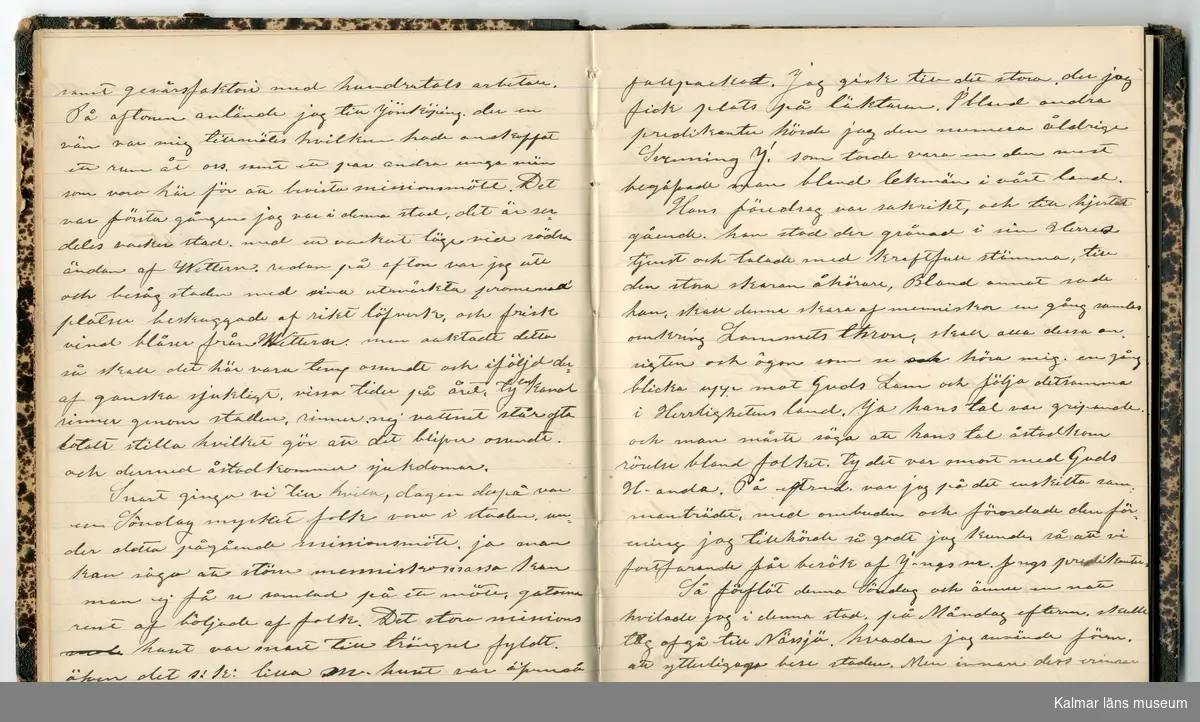 samt gevärsfaktori med hundratals arbetare.
På aftonen anlände jag till Jönköping. der en
vän var mig tillmötes hvilken hade anskaffat
ett rum åt oss. samt ett par andra unga män
som voro här för att bevista missionsmöte. Det
var första gången jag var i denna stad, det är sär-
deles vacker stad. med ett vackert läge vid södra
ändan af Wettern. redan på afton var jag ute
och besåg staden med sina utmärkta promenad
platser beskuggade af rikt löfverk, och frisk
vind blåser från Wettern. men oaktadt detta
så skall det här vara temp osundt och iföljd der
af ganska sjukligt, vissa tider på året, ty en kanal
rinner genom staden, rinner nej vattnet står ofta
totalt stilla hvilket gör att det blifver osundt.
och dermed åstadkommer sjukdomar.
Snart gingo vi till hvila, dagen derpå var
en Söndag mycket folk voro i staden, un-
der detta pågående missionsmöte. ja man
kan säga att större menniskomassa kan
man ej få se samlad på ett möte, gatorna
rent af böljade af folk. Det stora missions
huset var snart till trängsel fyldt.
äfven det s: k: lilla m. huset var äfvenså
fullpackadt. Jag gick till det stora. der jag
fick plats på läktaren. Ibland andra
predikanter hörde jag den numera åldrige
Svenning J. som torde vara en den mest
begåfvade man bland lekmän i vårt land.
Hans föredrag var sakrikt, och till hjertat
gående. han stod der grånad i sin Herres
tjenst och talade med kraftfull stämma, till
den stora skaran åhörare, Bland annat sade
han, skall denna skara af menniskor en gång samlas
omkring Lammets thron, skall alla dessa an-
sigten och ögon som se och höra mig. en gång
blicka upp mot Guds Lam och följa detsamma
i Herrlighetens land. Ja hans tal var gripande.
och man måste säga att hans tal åstadkom
rörelse bland folket. ty det var smort med Guds
H-anda. På eftmd. var jag på det enskilta sam-
manträdet, med ombuden och förordade den för-
ening jag tillhörde så godt jag kunde, så att vi
fortfarande får besök af J-ngs m. frngs predikanter.
Så förflöt denna Söndag och ännu en natt
hvilade jag i denna stad. på Måndag efterm. skulle
tåg afgå till Nässjö. hvadan jag använde förm.
att ytterligare bese staden. Men innan dess vinrar
Kalmar läns museum